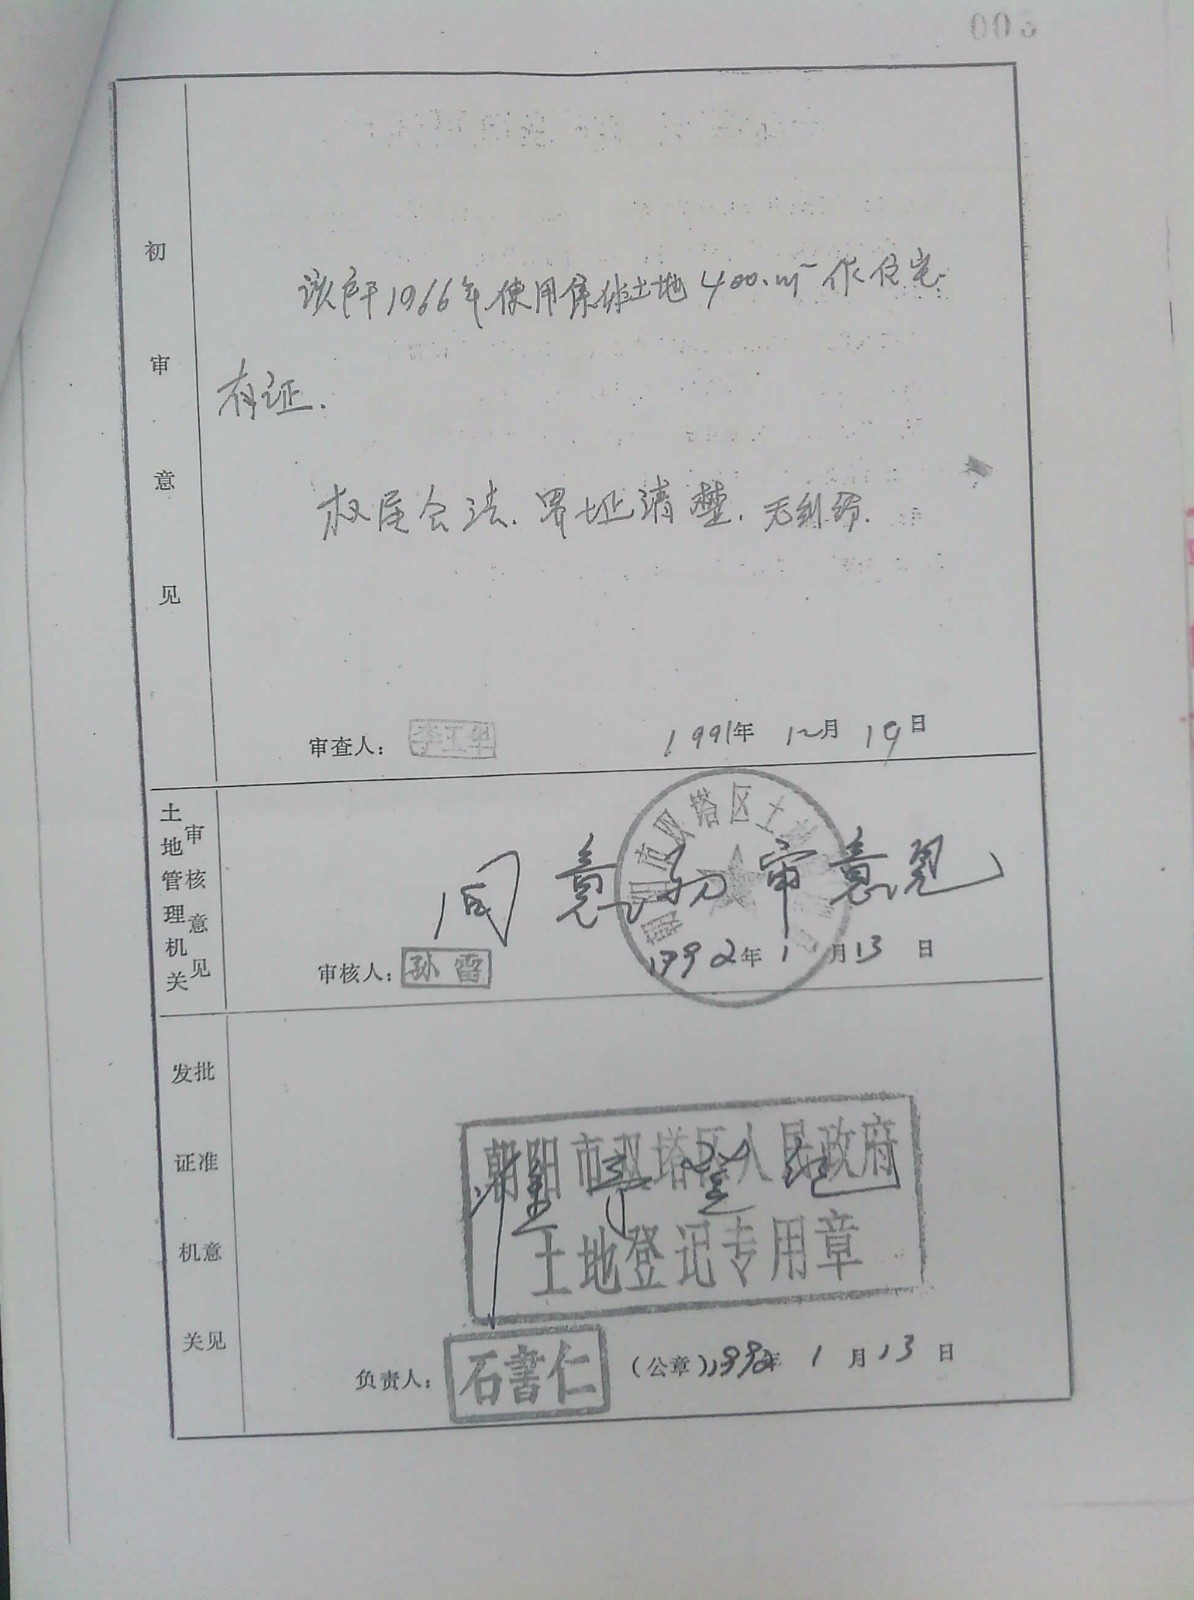 初审意见
该户于1966年使用集体土地400.m²作住宅.
有证.
权属合法.界址清楚.无纠纷.
审查人：李玉华 1991年12月19日
土地管理机关审核意见
同意初审意见
审核人：孙雷 1992年1月13日
发证机关批准意见
朝阳市双塔区人民政府
土地登记专用章
准予登记
负责人：石书仁 （公章）1992年1月13日